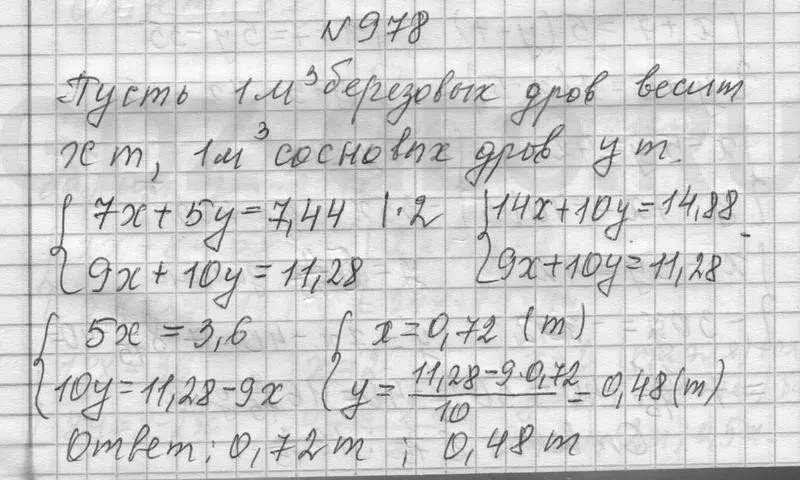 №978
Пусть 1м³ березовых дров весит
x т, 1м³ сосновых дров - y т.
{ 7x + 5y = 7,44 | · 2 { 14x + 10y = 14,88 -
{ 9x + 10y = 11,28 { 9x + 10y = 11,28
{ 5x = 3,6 { x = 0,72 (т)
{ 10y = 11,28 - 9x { y = (11,28 - 9 · 0,72)/10 = 0,48 (т)
Ответ: 0,72 т ; 0,48 т